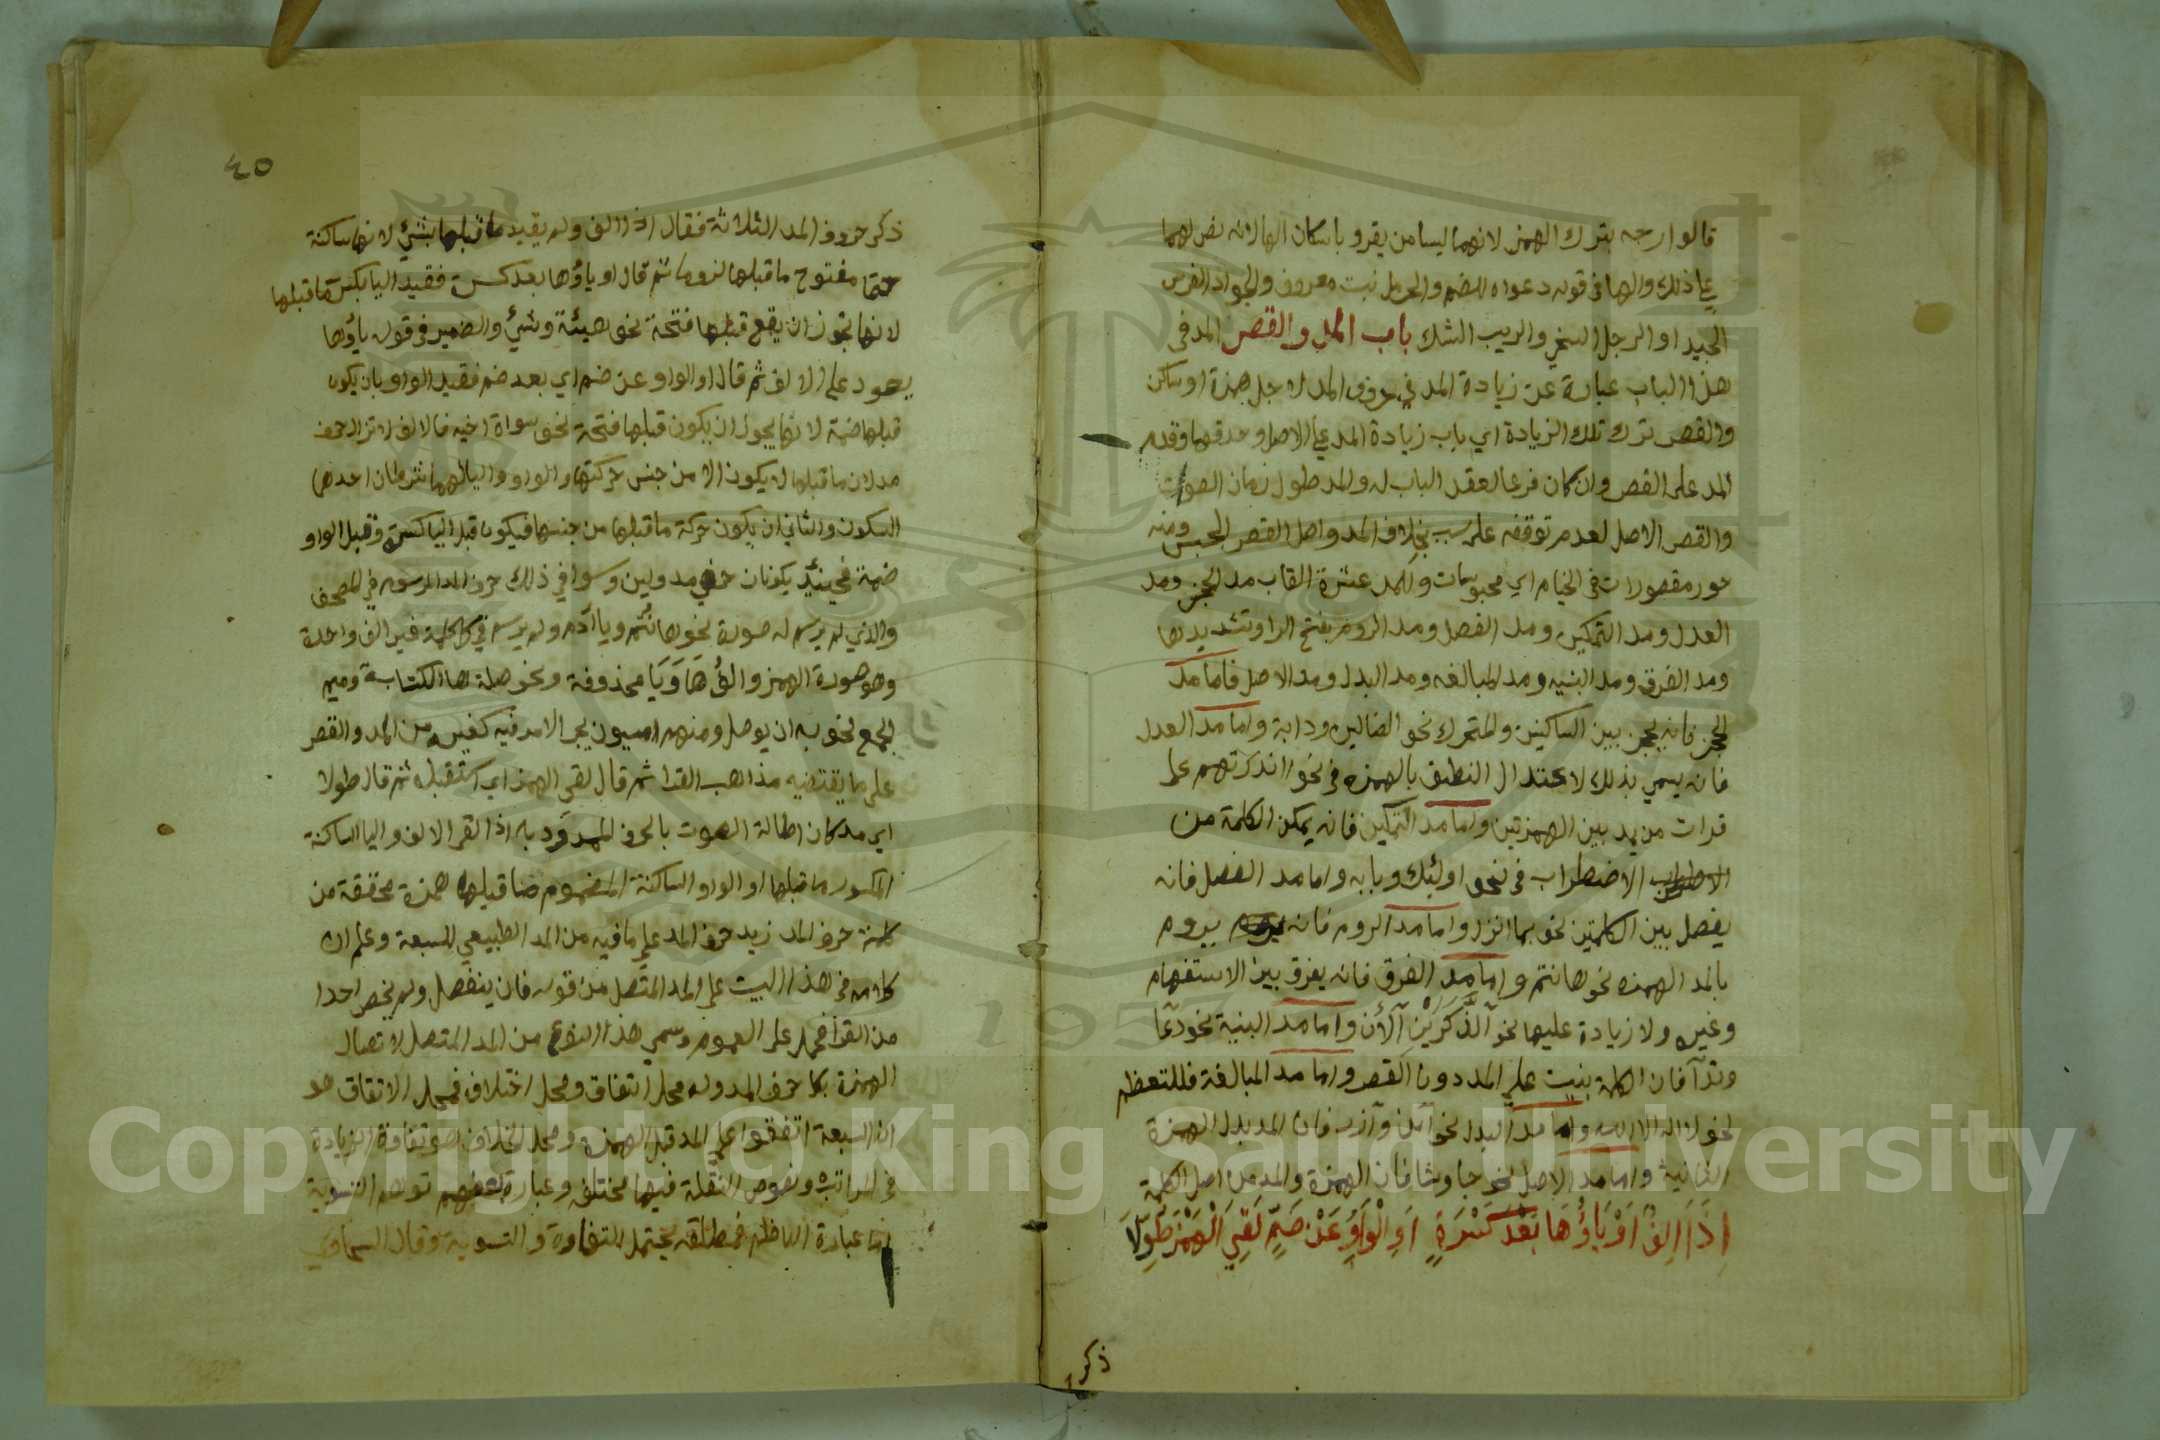 قالوا ارجه بترك الهمز لانهما ليسا من يقرو باسكان الها لانه نص لهما
علي ذلك والها في قوله دعواه للضم والحرمل نبت معروف والجواد الفرس
الجيد او الرجل السخي والريب الشك باب المد والقصر المد في
هذا الباب عبارة عن زيادة المد في حروف المد لاجل همزة او ساكن
والقصر ترك تلك الزيادة اي باب زيادة المد علي الاصل وحذفها وقدم
المد علي القصر وان كان فرعا لعقد الباب له والمد طول زمان الصوت
والقصر الاصل لعدم توقفه علي سبب بخلاف المد واصل القصر الحبس ومنه
حور مقصورات في الخيام اي محبوسات وللمد عشرة القاب مد الحجز ومد
العدل ومد التمكين ومد الفصل ومد الروم بفتح الرا وتشديدها
ومد الفرق ومد البنيه ومد المبالغه ومد البدل ومد الاصل فاما مد
الحجز فانه يحجز بين الساكنين والمتحرك نحو الضالين ودابة واما مد العدل
فانه يسمي بذلك لاعتدال النطق بالهمزه في نحو اانذرتهم علي
قرات من يمد بين الهمزتين واما مد التمكين فانه يمكن الكلمة من
الاضطراب في نحو اولئك وبابه واما مد الفصل فانه
يفصل بين الكلمتين نحو بما انزل واما مد الروم فانه يروم
بالمد الهمزه نحو هاانتم واما مد الفرق فانه يفرق بين الاستفهام
وغيره ولا زيادة عليها نحو آلذَّكَرَيْنِ آلْأن واما مد البنية نحو دعآ
وندآ فان الكلمة بنيت علي المد دون القصر واما مد المبالغة فللتعظيم
نحو لا اله الا الله واما مد البدل نحو آمن وآزر فان المد بدل الهمزة
الثانية واما مد الاصل نحو جا وشا فان الهمزة والمد من اصل الكلمة
اِذَا اَلِفٌ اَوْ يَاؤُهَا بَعْدَ كَسْرَةٍ اَوِ الْوَاوُ عَنْ ضَمٍّ لَقِيَ الْهَمْزَ طُوِّلَا
ذكر
٤٥
ذكر حروف المد الثلاثة فقال اذا الف ولم يقيد ما قبلها بشئ لانها ساكنة
حتما مفتوح ما قبلها لزوما ثم قال او ياؤها بعد كسرة فقيد اليا بكسر ما قبلها
لانها تجوز ان يقع قبلها فتحة نحو هيئة وشئ والضمير في قوله ياؤها
يعود علي الالف ثم قال او الواو عن ضم اي بعد ضم فقيد الواو بان يكون
قبلها ضمة لانها يجوز ان يكون قبلها فتحة نحو سواة اخيه فالالف لا تزال حرف
مد لان ما قبلها لا يكون الا من جنس حركتها والواو واليا لهما شرطان احدهما
السكون والثاني ان يكون حركة ما قبلها من جنسها فيكون قبل اليا كسرة وقبل الواو
ضمة فحينئذ يكونان حرفي مد ولين وسوا في ذلك حرف المد المرسوم في المصحف
والذي لم يرسم له صورة نحو هاانتم ويا ادم ولم يرسم في كل كلمة غير الف واحدة
وهو صورة الهمز والفُ هَا وَيَا محذوفة ونحو صلة ها الكتابة وميم
الجمع نحو به ان يوصل ومنهم اميون يجر الامر فيه كغيره من المد والقصر
علي ما يقتضيه مذاهب القرا ثم قال لقي الهمز اي استقبله ثم قال طولا
اي مد كان اطالة الصوت بالحرف الممدود به اذا لقي الالف واليا الساكنة
المكسور ما قبلها او الواو الساكنة المضموم ما قبلها همزة محققة من
كلمة حرف المد زيد حرف المد علي ما فيه من المد الطبيعي للسبعة وعلم ان
كلامه في هذا البيت علي المد المتصل من قوله فان ينفصل ولم يخص احدا
من القرا فحمل علي العموم وسمي هذا النوع من المد المتصل لاتصال
الهمزة بكا حرف المد وله محل اتفاق ومحل اختلاف فمحل الاتفاق هو
ان السبعة اتفقوا علي المد قبل الهمزه ومحل الخلاف هو تفاوت الزيادة
في المراتب ونصوص النَّقلة فيها مختلف وعبارة بعضهم توهم التسوية
اما عبارة الناظم فمطلقه تحتمل التفاوة والتسوية وقال السخاوي
Copyright © King Saud University
1957